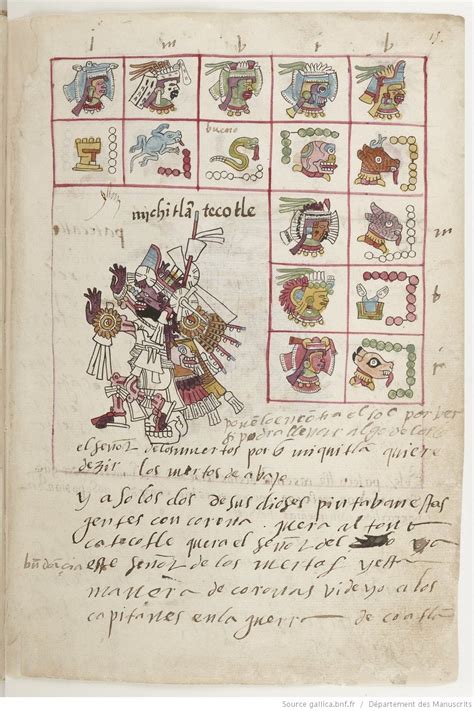 i m b r b 15.
bueno
michitlā tecotle
b
m
r
i
ponenlo en contra el sol por ver
si podra llevar algo de los
el señor de los muertos por q miquitla quiere
dezir los muertos de abajo
y a solos dos de sus dioses pintaban estas
gentes con corona. quera al tona
catecotle quera el señor del
este señor de los muertos y esta
manera de coronas vide yo a los
capitanes en la guerra de coatlā
Source gallica.bnf.fr / Département des Manuscrits